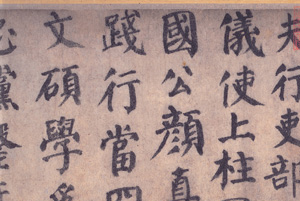 夫行吏部
儀使上柱國
國公顏真
踐行當四
文碩學為